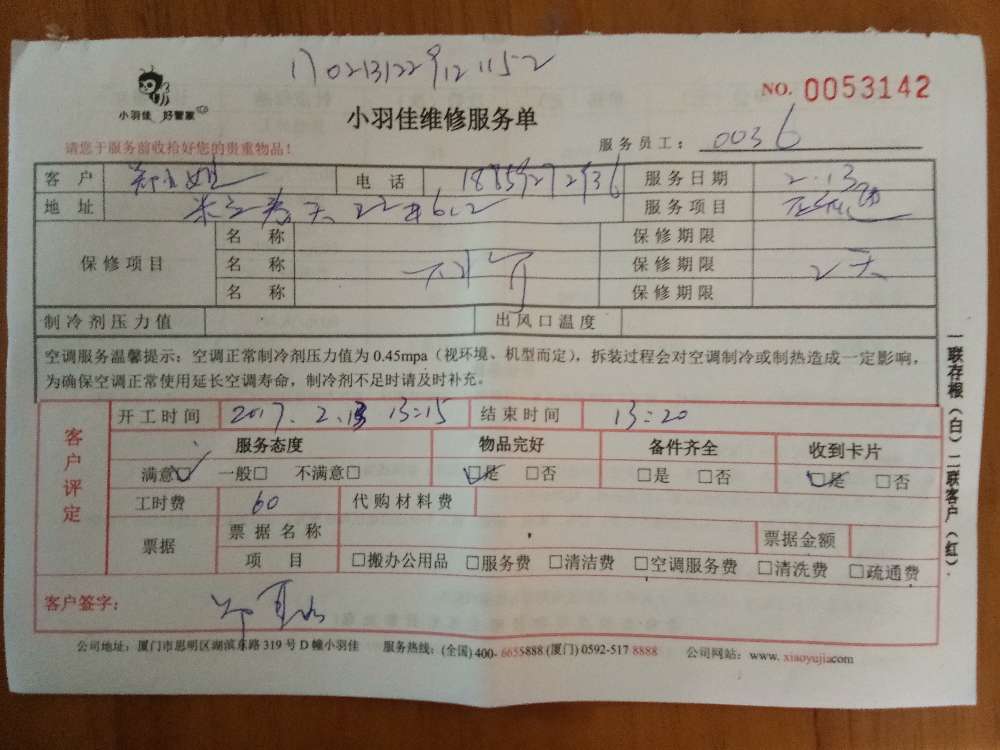 170213122912 1152
小羽佳 好管家
NO. 0053142
小羽佳维修服务单
请您于服务前收拾好您的贵重物品！
服务员工： 0036
客户 电话 服务日期 2.13
地址 服务项目
保修项目 名称 保修期限
名称 保修期限 2天
名称 保修期限
制冷剂压力值 出风口温度
空调服务温馨提示：空调正常制冷剂压力值为 0.45mpa（视环境、机型而定），拆装过程会对空调制冷或制热造成一定影响，
为确保空调正常使用延长空调寿命，制冷剂不足时请及时补充。
客户评定
开工时间 2017.2.13 13:15 结束时间 13:20
服务态度 物品完好 备件齐全 收到卡片
满意☑ 一般□ 不满意□ ☑是 □否 □是 □否 ☑是 □否
工时费 60 代购材料费
票据 票据名称 票据金额
项目 □搬办公用品 □服务费 □清洁费 □空调服务费 □清洗费 □疏通费
客户签字：
公司地址：厦门市思明区湖滨东路 319 号 D 幢小羽佳 服务热线：(全国) 400- 6655888 (厦门) 0592-517 8888 公司网站：www. xiaoyujia.com
一联存根（白）二联客户（红）.